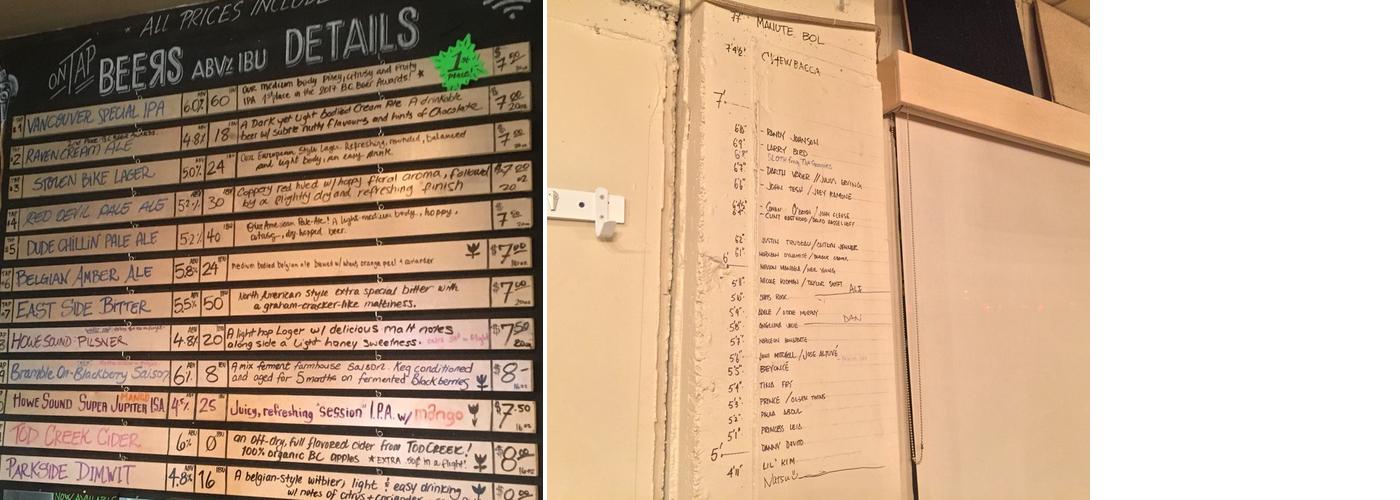 * ALL PRICES INCLUDE
ON TAP BEERS ABV% IBU DETAILS
1st PLACE!
VANCOUVER SPECIAL IPA 6.0% 60 Our medium body piney, citrusy and fruity
IPA 1st place in the 2017 BC Beer Awards! * $7.50
#2 RAVEN CREAM ALE 4.8% 18 A Dark yet Light bodied Cream Ale A drinkable
beer w/ subtle nutty flavours and hints of Chocolate $7.00 20oz
#3 STOLEN BIKE LAGER 5.0% 24 Our European Style Lager. Refreshing, rounded, balanced
and light body, an easy drink. $7.00
#4 RED DEVIL PALE ALE 5.2% 30 Coppery red hued w/ hoppy floral aroma, followed
by a slightly dry and refreshing finish $7.00 20
#5 DUDE CHILLIN PALE ALE 5.2% 40 American Pale Ale! A light-medium body, hoppy,
citrusy, dry-hopped beer. $7.00
BELGIAN AMBER ALE 5.8% 24 medium bodied belgian ale brewed w/ wheat, orange peel + coriander $7.00
#7 EAST SIDE BITTER 5.5% 50 North American style extra special bitter with
a graham-cracker-like maltiness. $7.00
HOWE SOUND PILSNER 4.8% 20 A light hop Lager w/ delicious malt notes
along side a light honey sweetness. $7.50
Bramble On-Blackberry Saison 6% 8 A mix ferment farmhouse Saison. Keg conditioned
and aged for 5 months on fermented Blackberries $8-
HOWE SOUND SUPER JUPITER MANGO ISA 4.5% 25 Juicy, refreshing "session" I.P.A. w/ mango $7.50
TOD CREEK CIDER 6% 0 an off-dry, full flavored cider from TOD CREEK!
100% organic BC apples *EXTRA 50¢ in a flight! $8.00
PARKSIDE DIMWIT 4.8% 16 A belgian-style witbier, light & easy drinking
w/ notes of citrus + coriander
NOW AVAILABLE
7'7" MANUTE BOL
7'4½" CHEWBACCA
7'
6'10" - RANDY JOHNSON
6'9" - LARRY BIRD
6'8" SLOTH from The Goonies
6'7" - DARTH VADER // JULIUS ERVING
6'6" - JOHN TESH / JOEY RAMONE
6'4½" - CONAN O'BRIEN / JOHN CLEESE
6'4" - CLINT EASTWOOD / DAVID HASSELHOFF
6'2" JUSTIN TRUDEAU / CAITLYN JENNER
6'1" BARACK OBAMA
6' NELSON MANDELA / NEIL YOUNG
5'11" NICOLE KIDMAN / TAYLOR SWIFT
5'10" CHRIS ROCK ALE
5'9" ADELE / EDDIE MURPHY
5'8" ANGELINA JOLIE DAN
5'7" NAPOLEON BONAPARTE
5'6" JONI MITCHELL / JOSE ALTUVE
5'5" BEYONCÉ
5'4" TINA FEY
5'3" PRINCE / OLSEN TWINS
5'2" PAULA ABDUL
5'1" PRINCESS LEIA
5' DANNY DEVITO
4'11" LIL' KIM